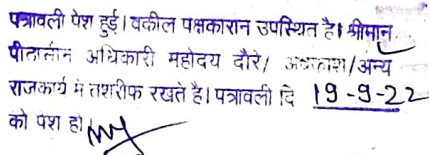 पत्रावली पेश हुई। वकील पक्षकारान उपस्थित है। श्रीमान
पीठासीन अधिकारी महोदय दौरे/ अवकाश/अन्य
राजकार्य में तशरीफ रखते है। पत्रावली दि 19-9-22
को पेश हो